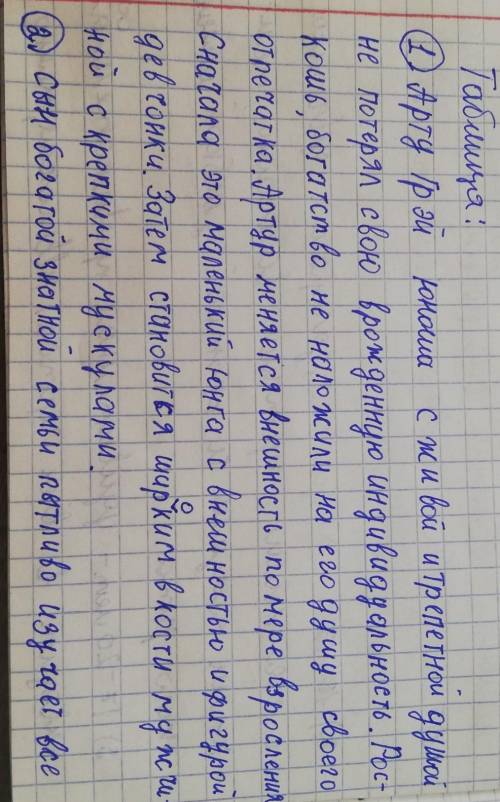 Таблица:
① Арту Грэй юноша с живой и трепетной душой
не потерял свою врожденную индивидуальность. Рос-
кошь, богатство не наложили на его душу своего
отречатка. Артур меняется внешность по мере взросления
Сначала это маленький юнга с внешностью и фигурой
девчонки. Затем становиться широким в кости мужчи-
ной с крепкими мускулами.
② Сын богатой знатной семьи пятливо изучает все